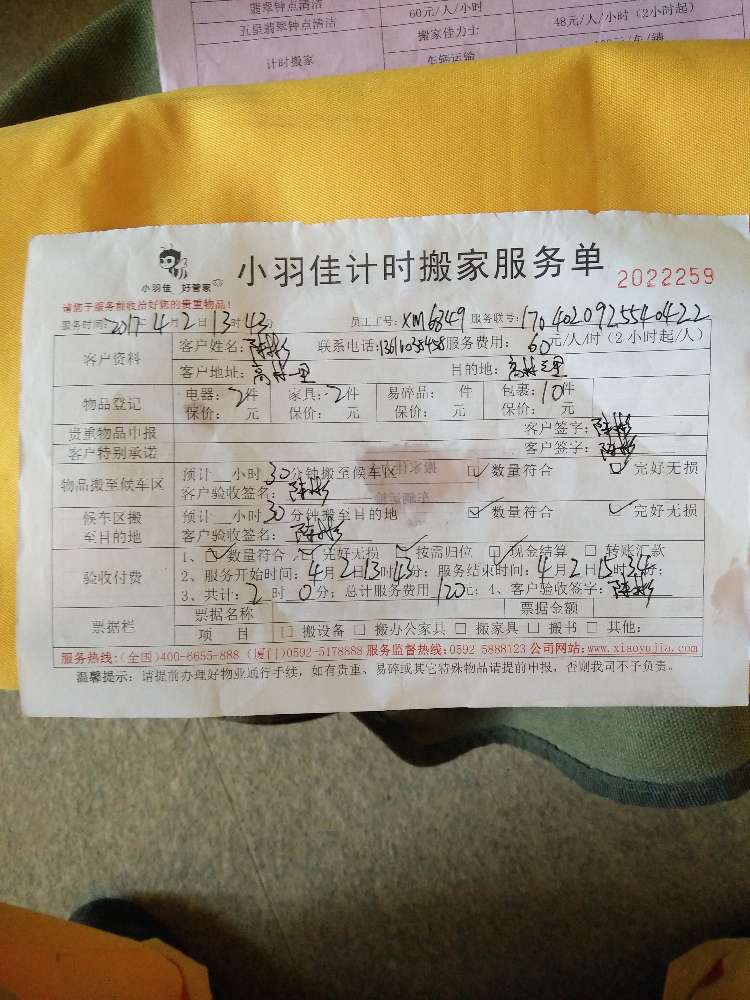 翡翠钟点清洁 60元/人/小时
五星翡翠钟点清洁 搬家佳力士 48元/人/小时（2小时起）
计时搬家 车辆运输 元/车/辆
小羽佳 好管家
小羽佳计时搬家服务单 2022259
请您于服务前收拾好您的贵重物品！
服务时间：2017年4月2日13时43分 员工工号：XM6849 服务联号：170402092554042​2
客户资料 客户姓名：陈彬 联系电话： 服务费用：60元/人/时（2小时起/人）
客户地址：高林一里 目的地：高林三里
物品登记 电器：2件 家具：2件 易碎品： 件 包裹：10件
保价： 元 保价： 元 保价： 元 保价： 元
贵重物品申报 客户签字：陈彬
客户特别承诺 客户签字：陈彬
物品搬至候车区 预计 小时30分钟搬至候车区 ☑数量符合 ☑完好无损
客户验收签名：陈彬
候车区搬至目的地 预计 小时30分钟搬至目的地 ☑数量符合 ☑完好无损
客户验收签名：陈彬
验收付费 1、☑数量符合 ☑完好无损 ☑按需归位 ☑现金结算 □转账汇款
2、服务开始时间：4月2日13时43分；服务结束时间：4月2日15时34分；
3、共计：2时0分；总计服务费用120元；1、客户验收签字：陈彬
票据栏 票据名称 票据金额
项 目 □搬设备 □搬办公家具 □搬家具 □搬书 □其他：
服务热线：(全国)400-6655-888 (厦门)0592-5178888 服务监督热线：0592 5888123 公司网站：www.xiaoyujia.com
温馨提示：请提前办理好物业通行手续，如有贵重、易碎或其它特殊物品请提前申报，否则我司不予负责。